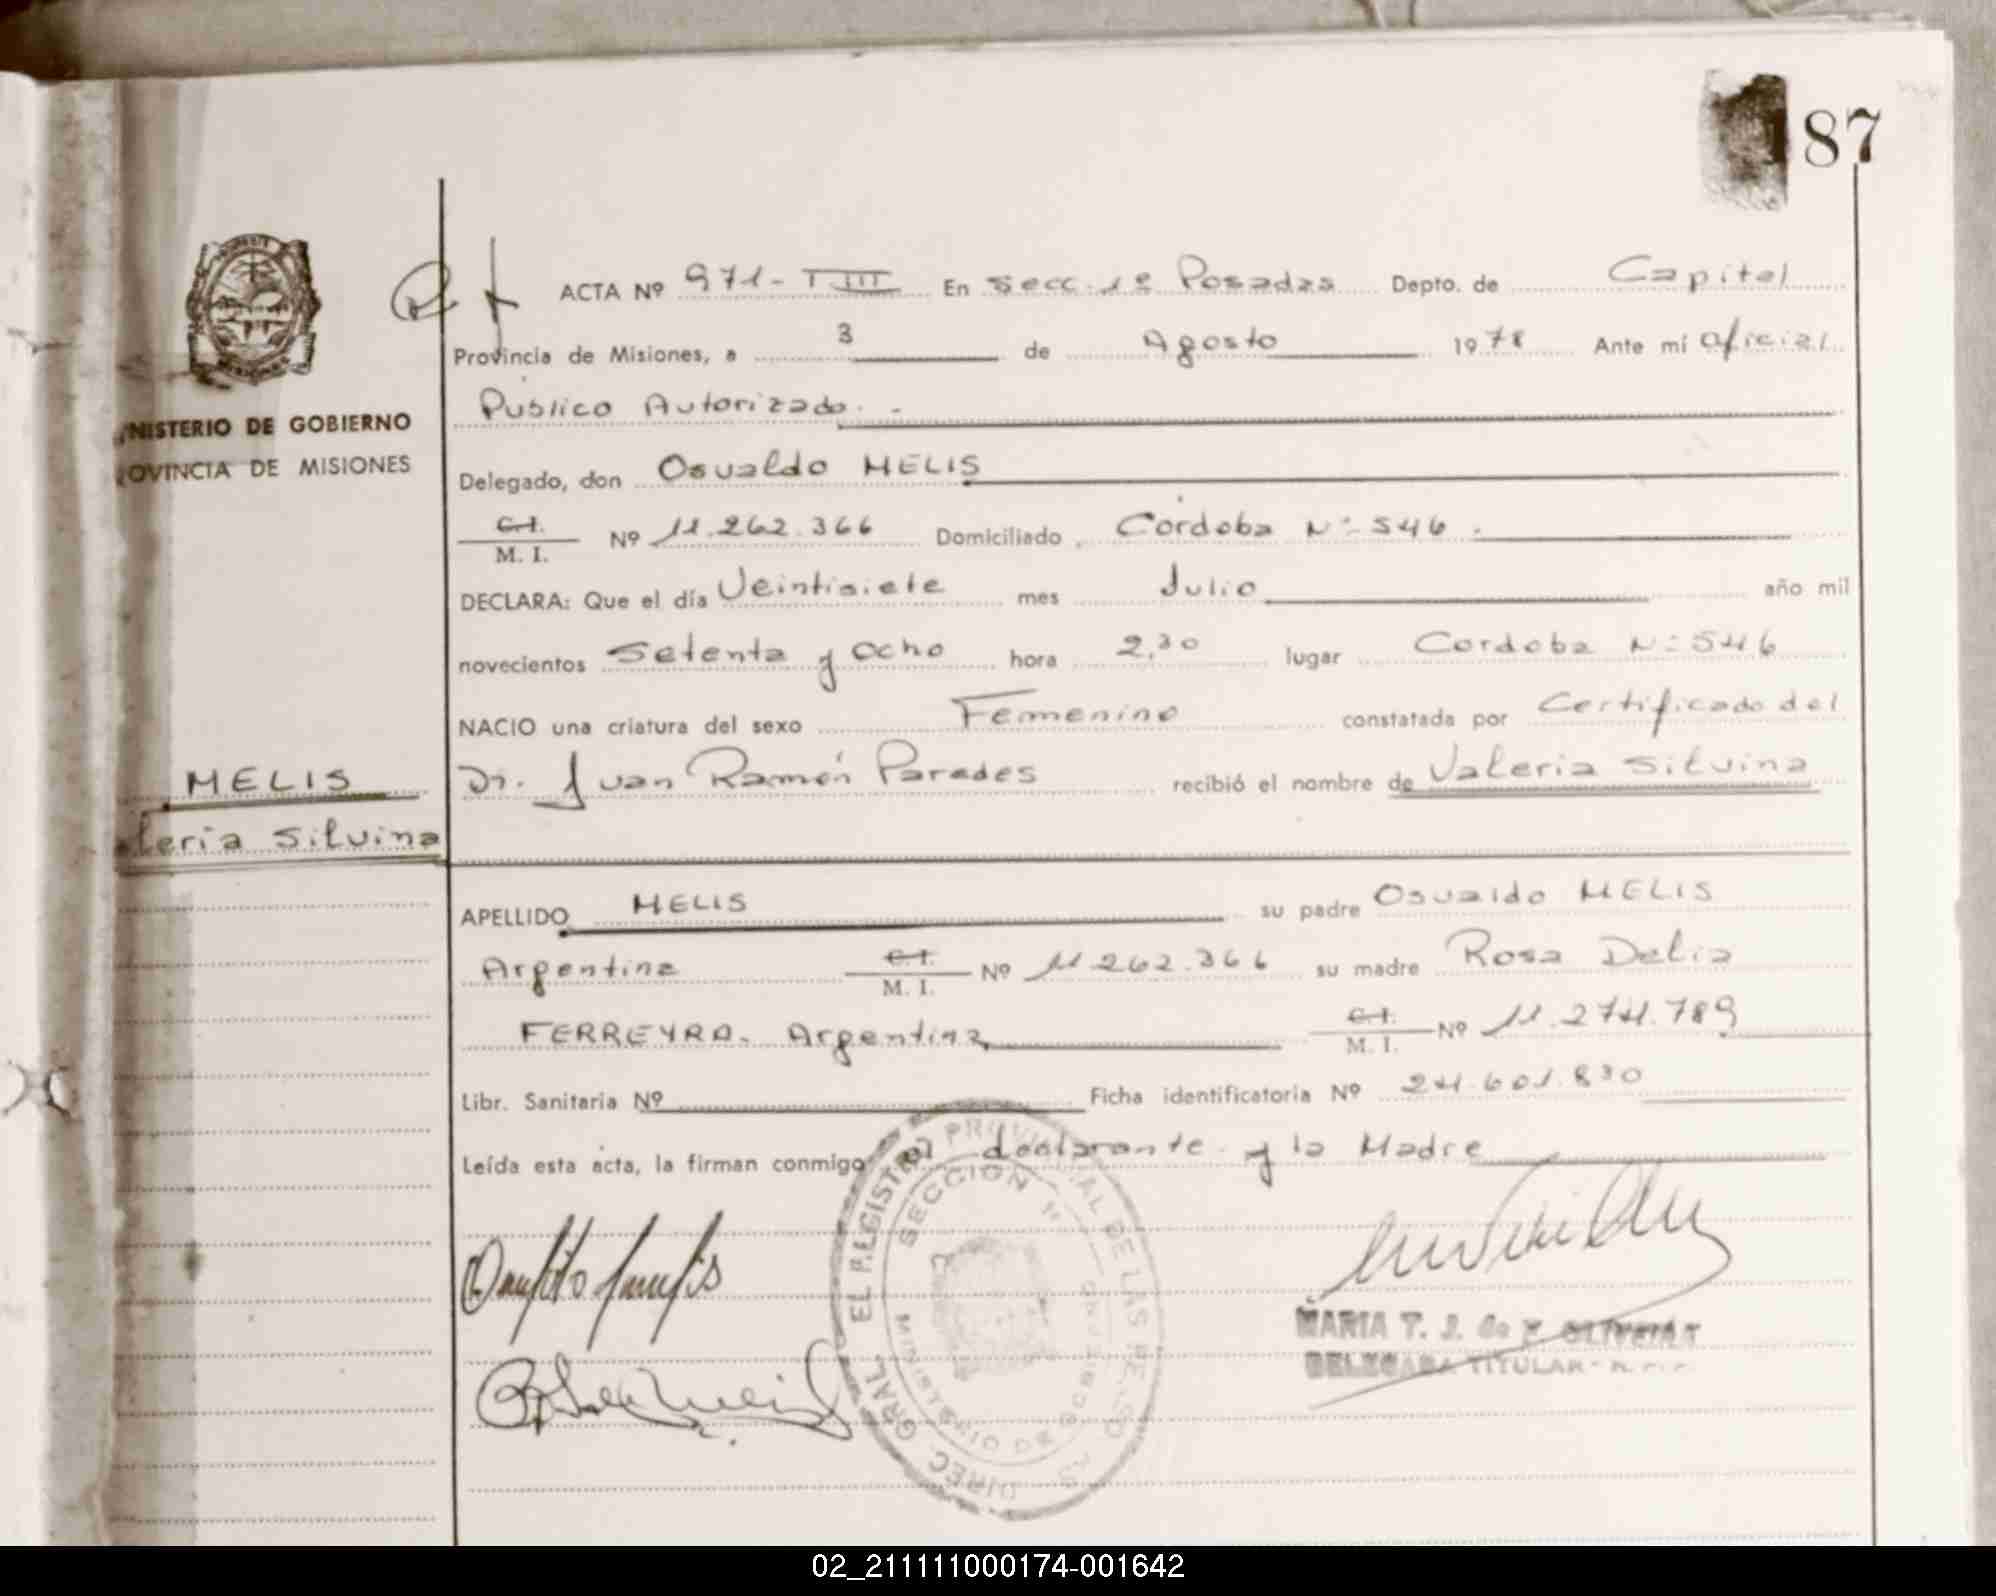 87
ACTA Nº 971-T III En Secc. 1ª Posadas Depto. de Capital
Provincia de Misiones, a 3 de Agosto 1978 Ante mí Oficial
Público Autorizado.-
MINISTERIO DE GOBIERNO
PROVINCIA DE MISIONES
Delegado, don Osvaldo MELIS
C.I. / M. I. Nº 11.262.366 Domiciliado Córdoba Nº 546.
DECLARA: Que el día Veintisiete mes Julio año mil
novecientos Setenta y ocho hora 2,30 lugar Cordoba Nº 546
NACIO una criatura del sexo Femenino constatada por Certificado del
Dr. Juan Ramón Parades recibió el nombre de Valeria Silvina
MELIS
leria Silvina
APELLIDO MELIS su padre Osvaldo MELIS
Argentina C.I. / M. I. Nº 11.262.366 su madre Rosa Delia
FERREYRA. Argentina C.I. / M. I. Nº 11.274.789
Libr. Sanitaria Nº Ficha identificatoria Nº 24.601.830
Leída esta acta, la firman conmigo el declarante y la Madre
DIREC. GRAL. EL REGISTRO PROVINCIAL DE LAS PERSONAS
SECCION 1ª
MINISTERIO DE GOBIERNO
MARIA T. J. de OLIVEIRA
DELEGADA TITULAR
02_211111000174-001642